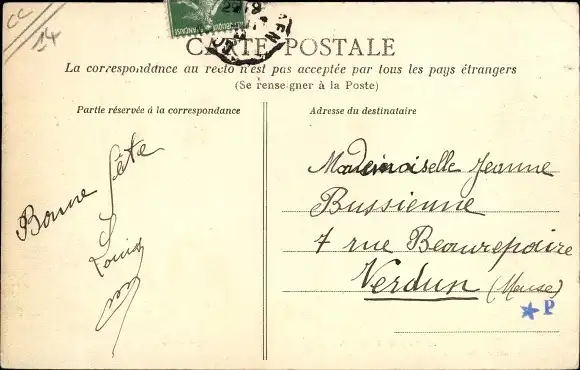 CC
14
CARTE POSTALE
La correspondance au recto n'est pas acceptée par tous les pays étrangers
(Se renseigner à la Poste)
Partie réservée à la correspondance
Adresse du destinataire
Bonne fête
Louis
Mademoiselle Jeanne
Bussienne
7 rue Beaurepaire
Verdun (Meuse)
P